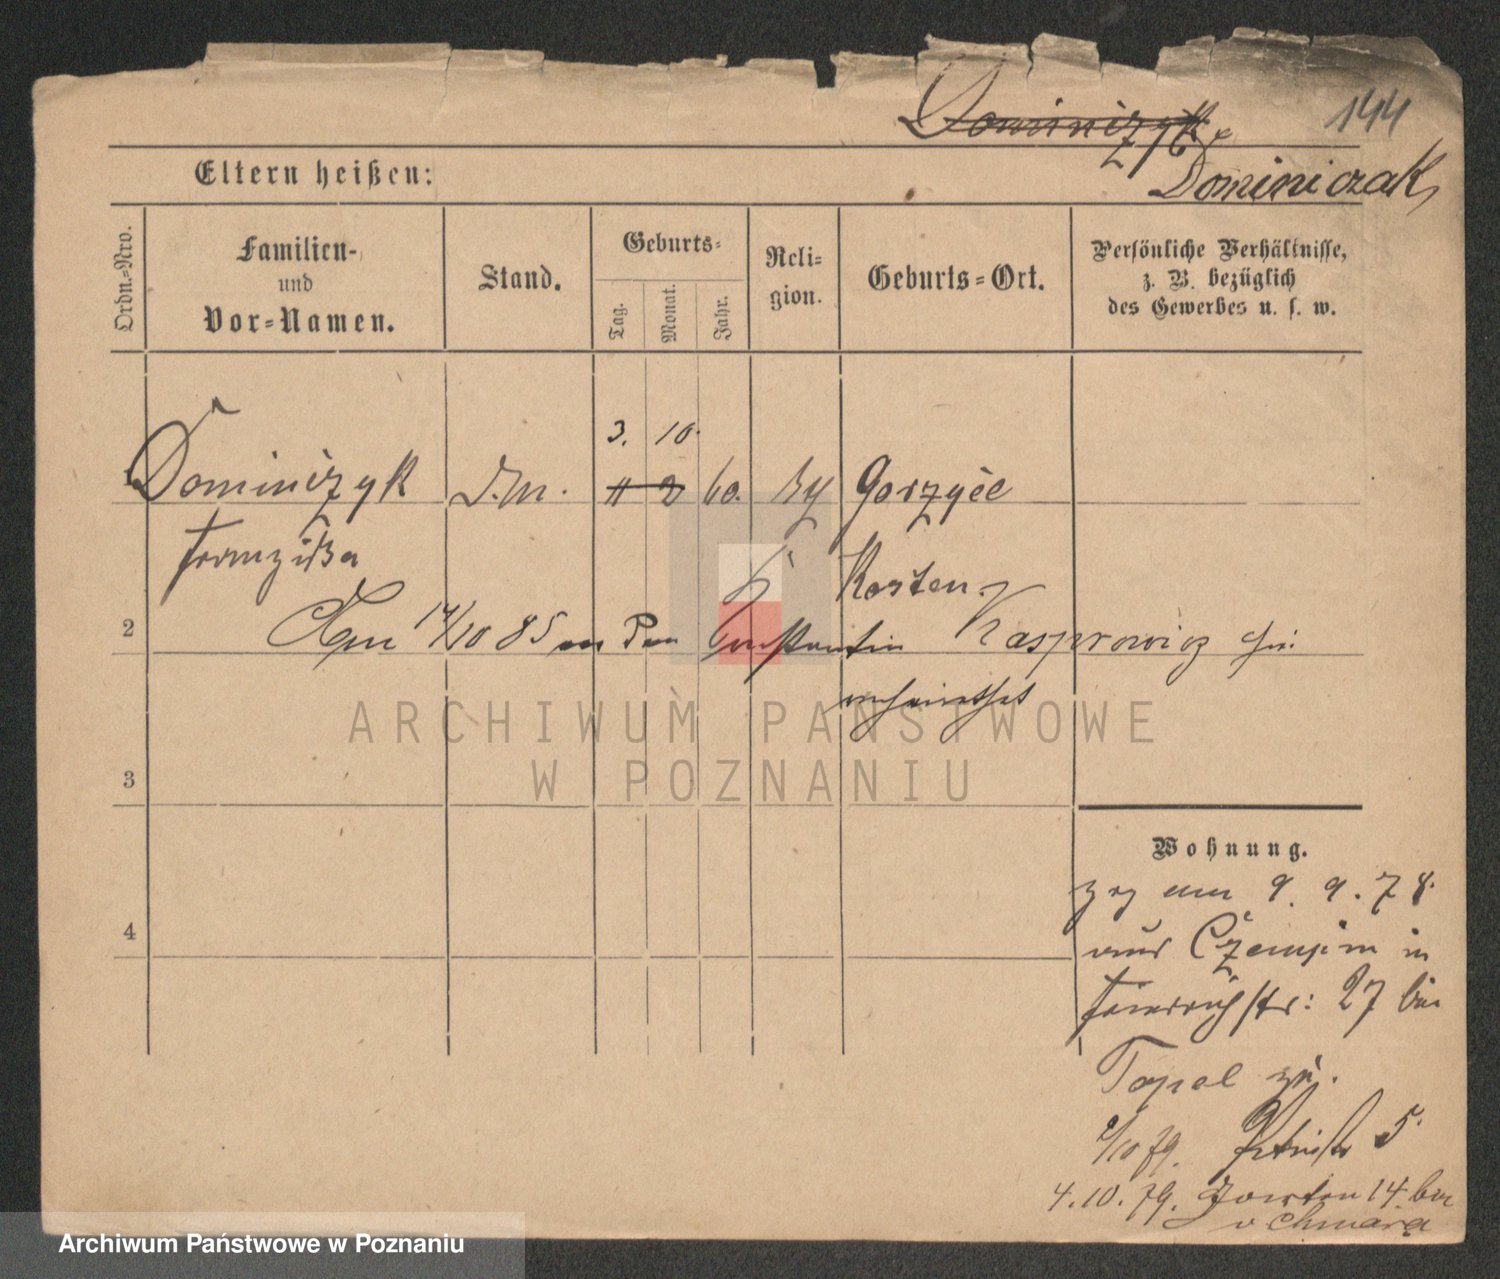 144
Dominiczyk
Dominiczak
Eltern heißen:
Ordn.-Nro.
Familien-
und
Vor-Namen.
Stand.
Geburts-
Tag.
Monat.
Jahr.
Reli-
gion.
Geburts-Ort.
Persönliche Verhältnisse,
z. B. bezüglich
des Gewerbes u. s. w.
3. 10.
1 Dominiczyk D.M. 11 2 60. Gorzyce
Franziska Kosten
2 Am 14/10 85 Constantin Kasprowicz
verheirathet
3
Wohnung.
zog am 9. 9. 78.
aus Czempin in
27 bei
4
Topel
2/10 79. 5.
4.10.79. 14 bei
v Chmara
ARCHIWUM PAŃSTWOWE
W POZNANIU
Archiwum Państwowe w Poznaniu